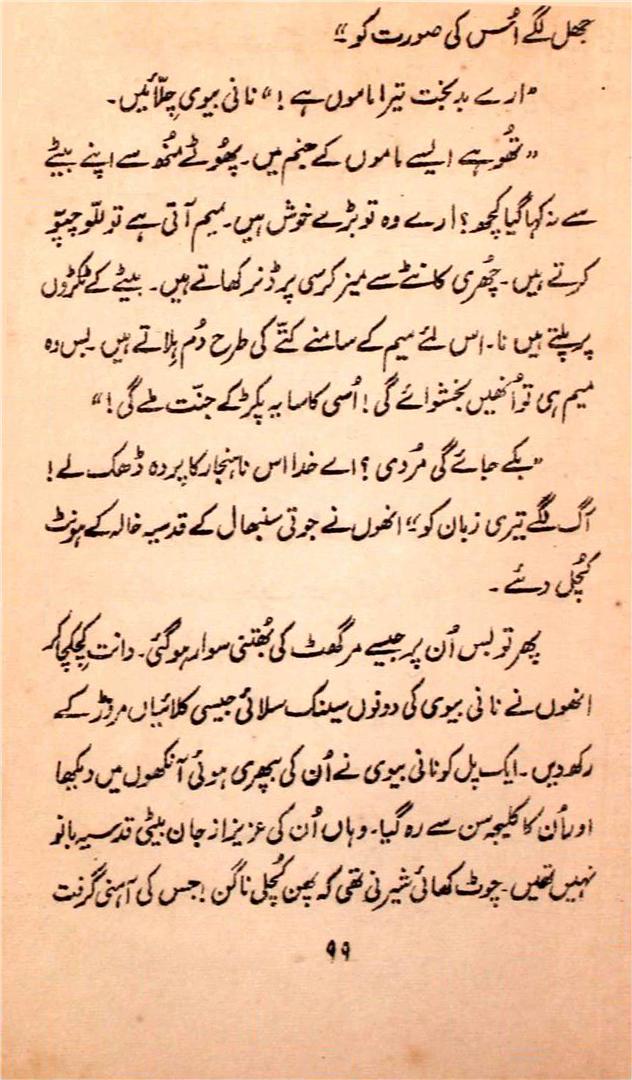 جھل لگے اُس کی صورت کو“
”ارے بدبخت تیرا ماموں ہے!“ نانی بیوی چلّائیں۔
”تھُو ہے ایسے ماموں کے جنم میں۔ پھُوٹے مُنھ سے اپنے بیٹے
سے نہ کہا گیا کچھ؟ ارے وہ تو بڑے خوش ہیں۔ میم آتی ہے تو للّو چپّو
کرتے ہیں۔ چھُری کانٹے سے میز کرسی پر ڈنر کھاتے ہیں۔ بیٹے کے ٹکڑوں
پر پلتے ہیں نا۔ اس لئے میم کے سامنے کتّے کی طرح دُم ہِلاتے ہیں۔ بس وہ
میم ہی تو اُنھیں بخشوائے گی! اُسی کا سایہ پکڑ کے جنّت ملے گی!“
”بکے جائے گی مُردی؟ اے خدا اس ناہنجار کا پردہ ڈھک لے!
آگ لگے تیری زبان کو“ انھوں نے جوتی سنبھال کے قدسیہ خالہ کے ہونٹ
کُچل دئے۔
پھر تو بس اُن پر جیسے مرگھٹ کی بھُتنی سوار ہو گئی۔ دانت کِچکِچا کر
انھوں نے نانی بیوی کی دونوں سینک سلائی جیسی کلائیاں مروڑ کے
رکھ دیں۔ ایک پل کو نانی بیوی نے اُن کی بپھری ہوئی آنکھوں میں دیکھا
اور اُن کا کلیجہ سن سے رہ گیا۔ وہاں اُن کی عزیز از جان بیٹی قدسیہ بانو
نہیں تھیں۔ چوٹ کھائی شیرنی تھی کہ پھن کُچلی ناگن! جس کی آہنی گرفت
۹۹